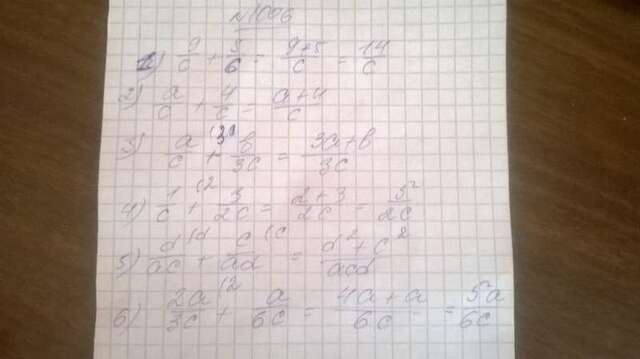 №1006
1) 9/c + 5/c = 9+5/c = 14/c
2) a/c + 4/c = a+4/c
3) a/c (3 + b/3c = 3a+b/3c
4) 1/c (2 + 3/2c = 2+3/2c = 5/2c
5) d/ac (d + c/ad (c = d²+c²/acd
6) 2a/3c (2 + a/6c = 4a+a/6c = 5a/6c